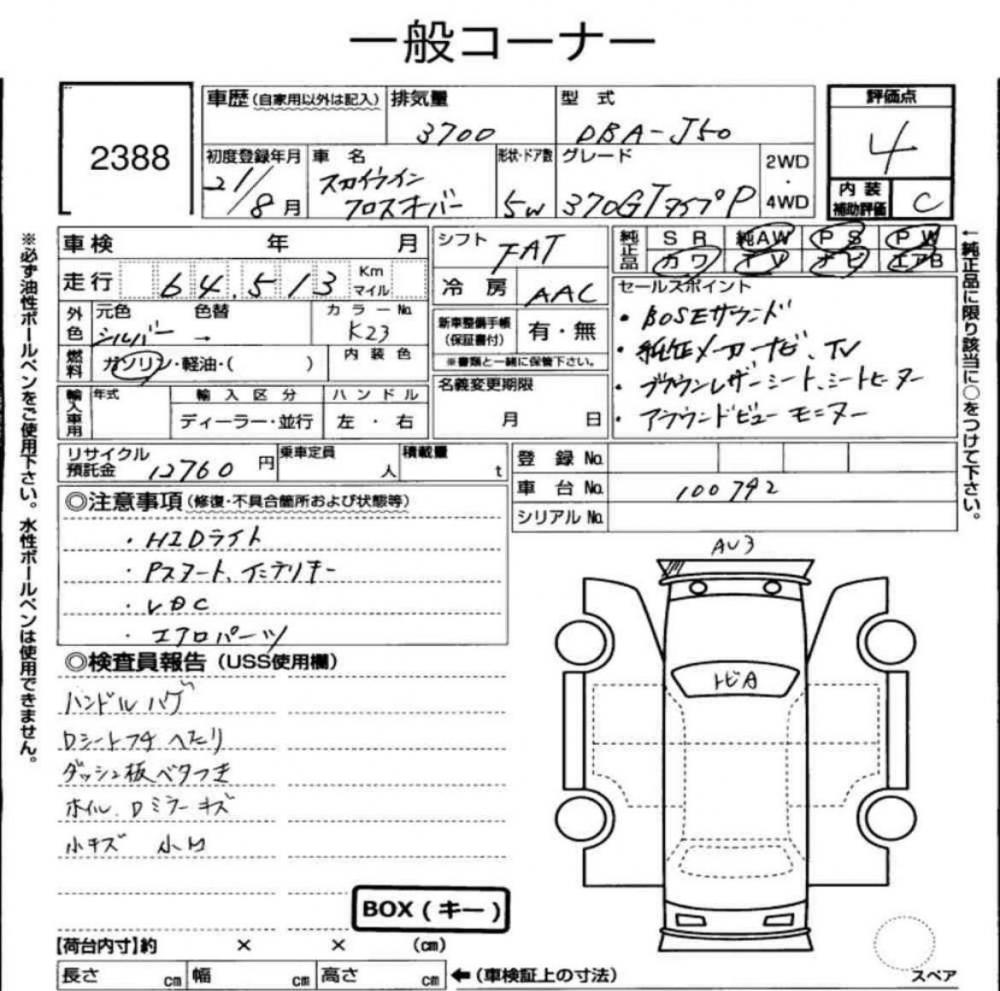 一般コーナー
2388
車歴(自家用以外は記入)
排気量
3700
型式
DBA-J50
評価点
4
初度登録年月
21/8月
車名
スカイライン
クロスオーバー
形状・ドア数
5W
グレード
370GTタイプP
2WD
・
4WD
内装
補助評価
C
※必ず油性ボールペンをご使用下さい。水性ボールペンは使用できません。
車検 年 月
走行 64.513 Km マイル
外色
元色 色替
シルバー →
カラーNo.
K23
燃料
ガソリン・軽油・( )
内装色
輸入車用
年式
輸入区分
ディーラー・並行
ハンドル
左・右
シフト
FAT
冷房
AAC
新車整備手帳
(保証書付)
有・無
※書類と一緒に保管下さい。
名義変更期限
月 日
純正品
SR 純AW PS PW
カワ TV ナビ エアB
セールスポイント
・BOSEサウンド
・純正メーカーナビ、TV
・ブラウンレザーシート、シートヒーター
・アラウンドビューモニター
←純正品に限り該当に○をつけて下さい。
リサイクル
預託金
12760円
乗車定員
人
積載量
t
登録No.
車台No.
100792
シリアルNo.
◎注意事項(修復・不具合箇所および状態等)
・HIDライト
・Pスタート、インテリキー
・VDC
・エアロパーツ
◎検査員報告(USS使用欄)
ハンドルハゲ
Dシートフチ へたり
ダッシュ板ベタつき
ホイル、Dミラーキズ
小キズ 小凹
AU3
トビA
BOX(キー)
【荷台内寸】約 × × (cm)
長さ cm 幅 cm 高さ cm
←(車検証上の寸法)
スペア